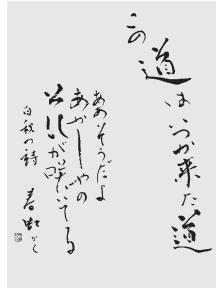 この
道はいつか来た道
ああそうだよ
あかしやの
花が咲いてる
白秋の詩
春虹かく